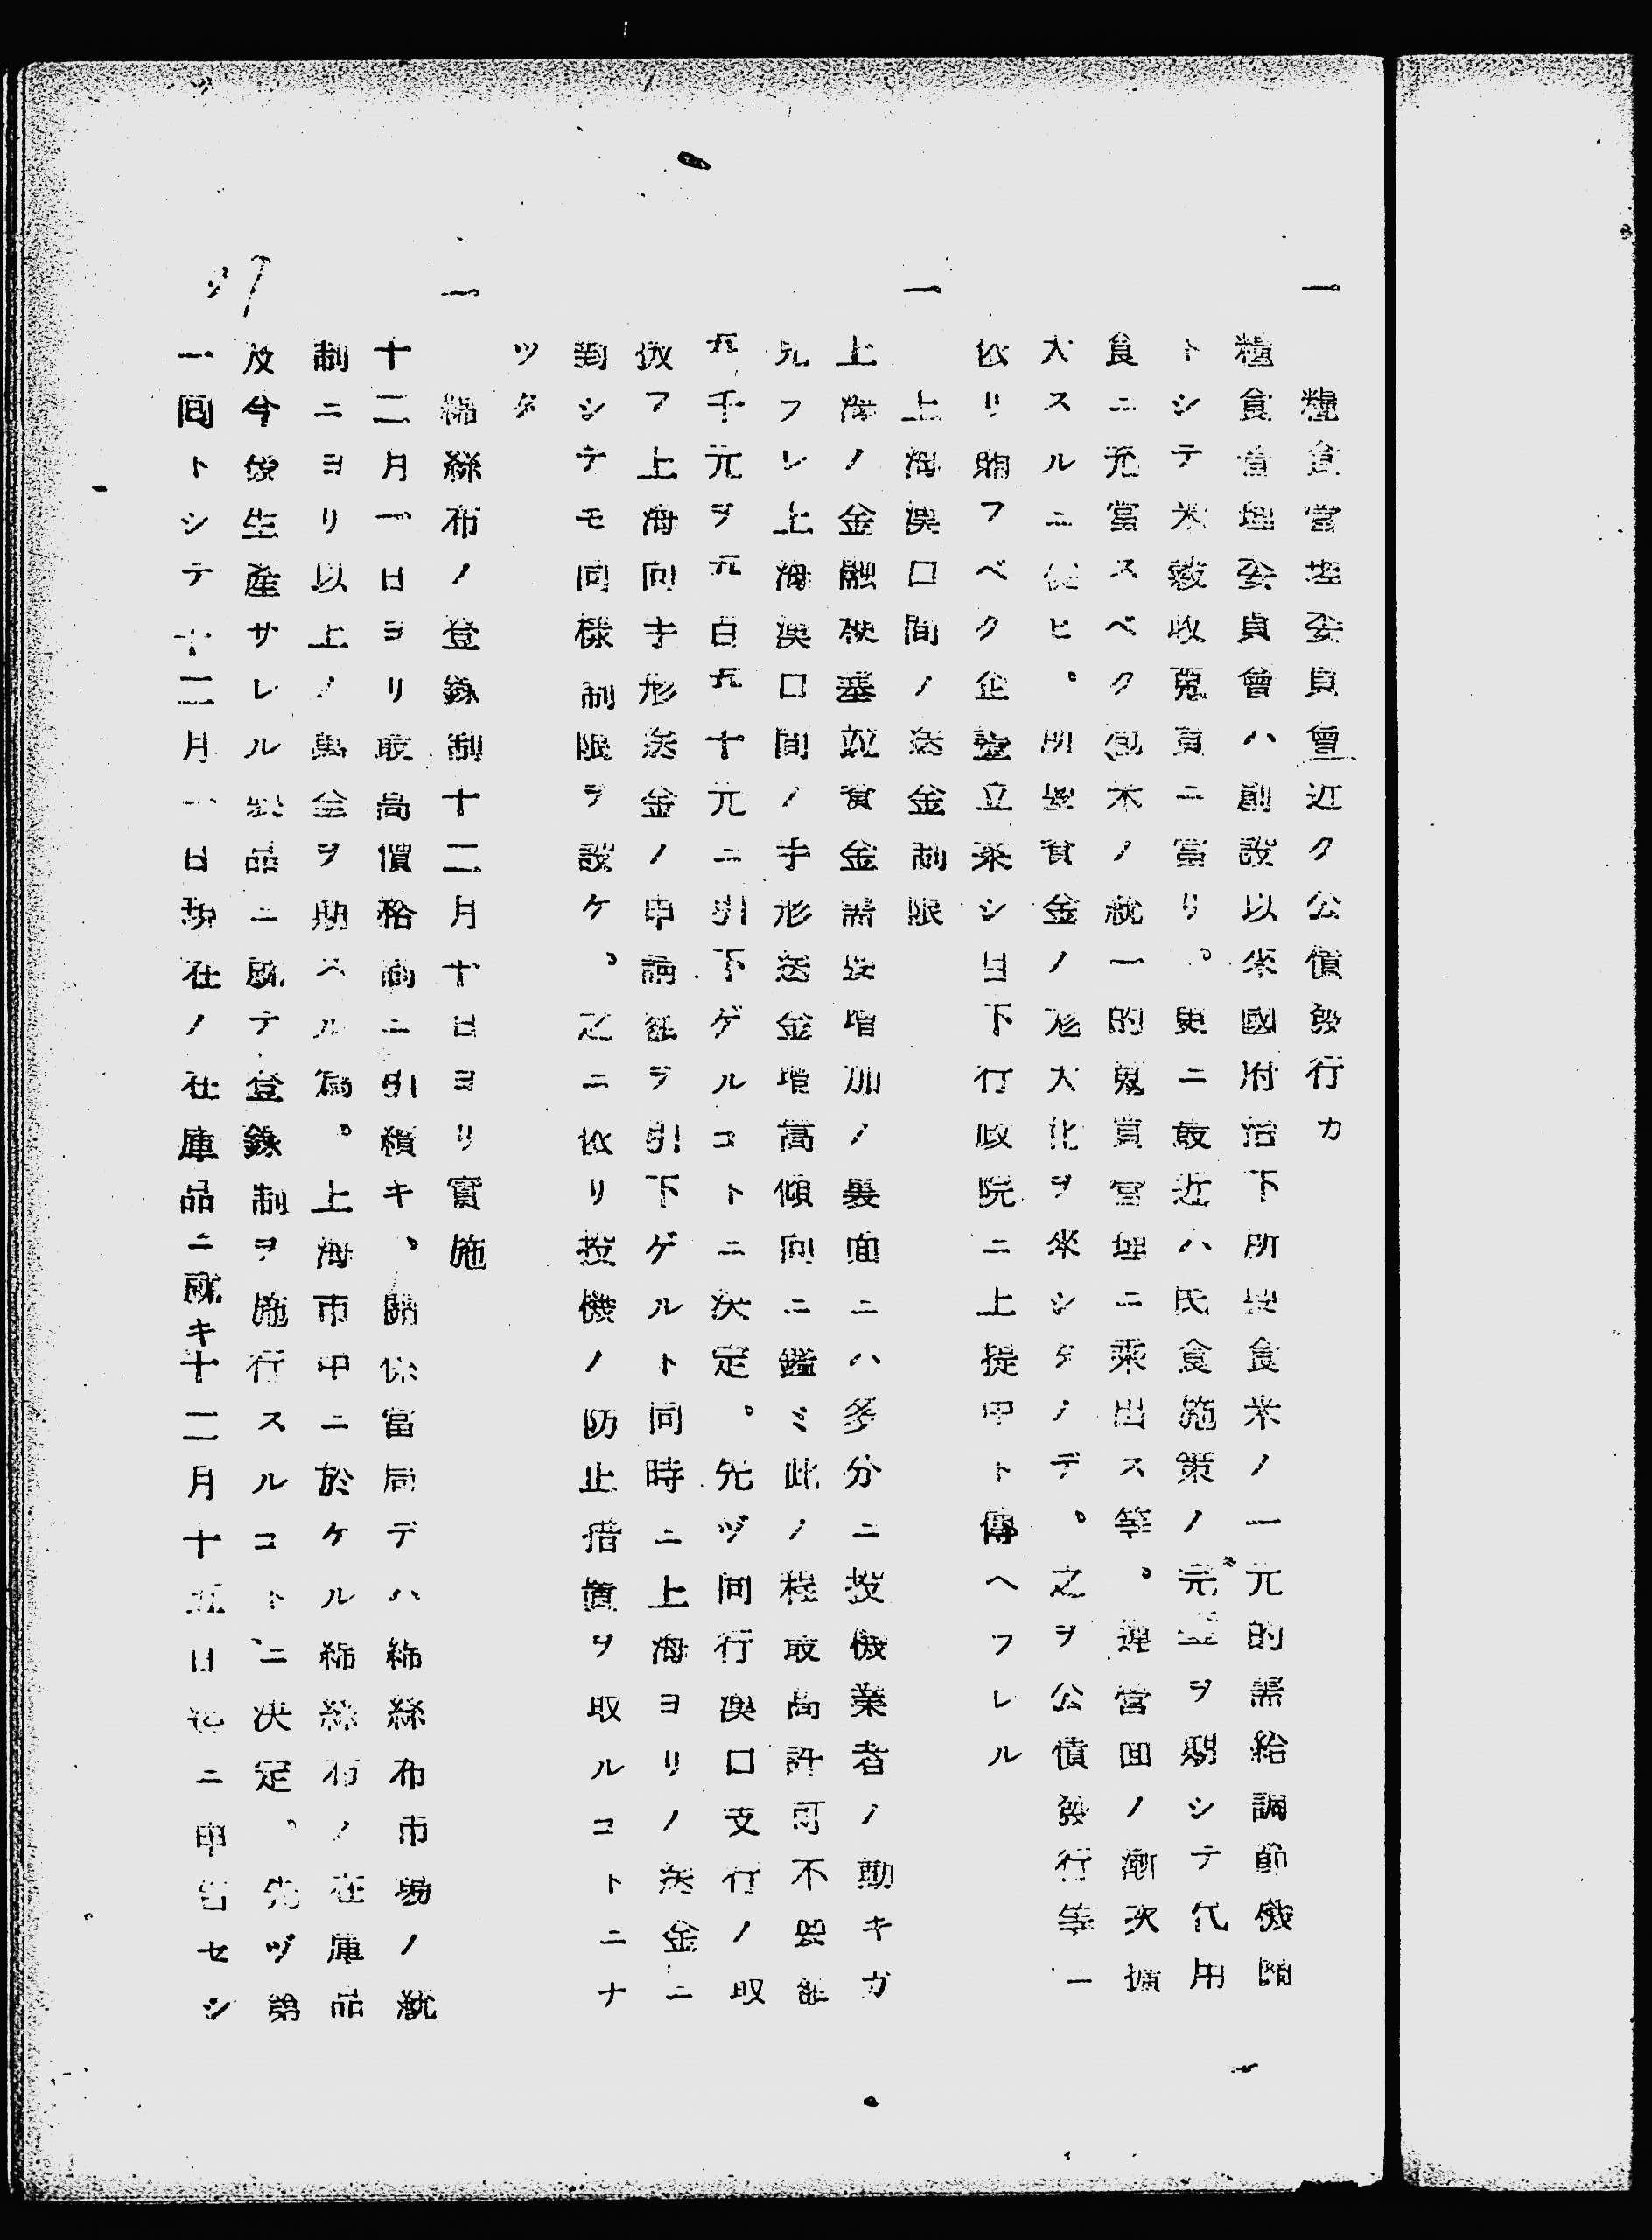 一 糧食管理委員會近ク公債發行カ
糧食管理委員會ハ創設以來國府治下所要食米ノ一元的需給調節機關
トシテ米穀收蒐買ニ當リ。更ニ最近ハ民食施策ノ完璧ヲ期シテ代用
食ニ充當スベク包米ノ統一的蒐買管理ニ乘出ス等。運營面ノ漸次擴
大スルニ從ヒ。所要資金ノ尨大化ヲ來シタノデ。之ヲ公債發行等ニ
依リ賄フベク企畫立案シ目下行政院ニ上提中ト傳ヘフレル
一 上海漢口間ノ送金制限
上海ノ金融梗塞竝資金需要增加ノ裏面ニハ多分ニ投機業者ノ動キガ
見フレ上海漢口間ノ手形送金增高傾向ニ鑑ミ此ノ程最高許可不要額
五千元ヲ元百五十元ニ引下ゲルコトニ決定。先ヅ同行漢口支行ノ取
扱フ上海向手形送金ノ申請額ヲ引下ゲルト同時ニ上海ヨリノ送金ニ
對シテモ同樣制限ヲ設ケ。之ニ依リ投機ノ防止措置ヲ取ルコトニナ
ツタ
一 綿絲布ノ登錄制十二月十日ヨリ實施
十二月一日ヨリ最高價格制ニ引續キ、關係當局デハ綿絲布市場ノ統
制ニヨリ以上ノ萬全ヲ期スル為。上海市中ニ於ケル綿絲布ノ在庫品
及今後生產サレル製品ニ就テ登錄制ヲ施行スルコトニ決定。先ヅ第
一囘トシテ十二月一日現在ノ在庫品ニ就キ十二月十五日迄ニ申告セシ